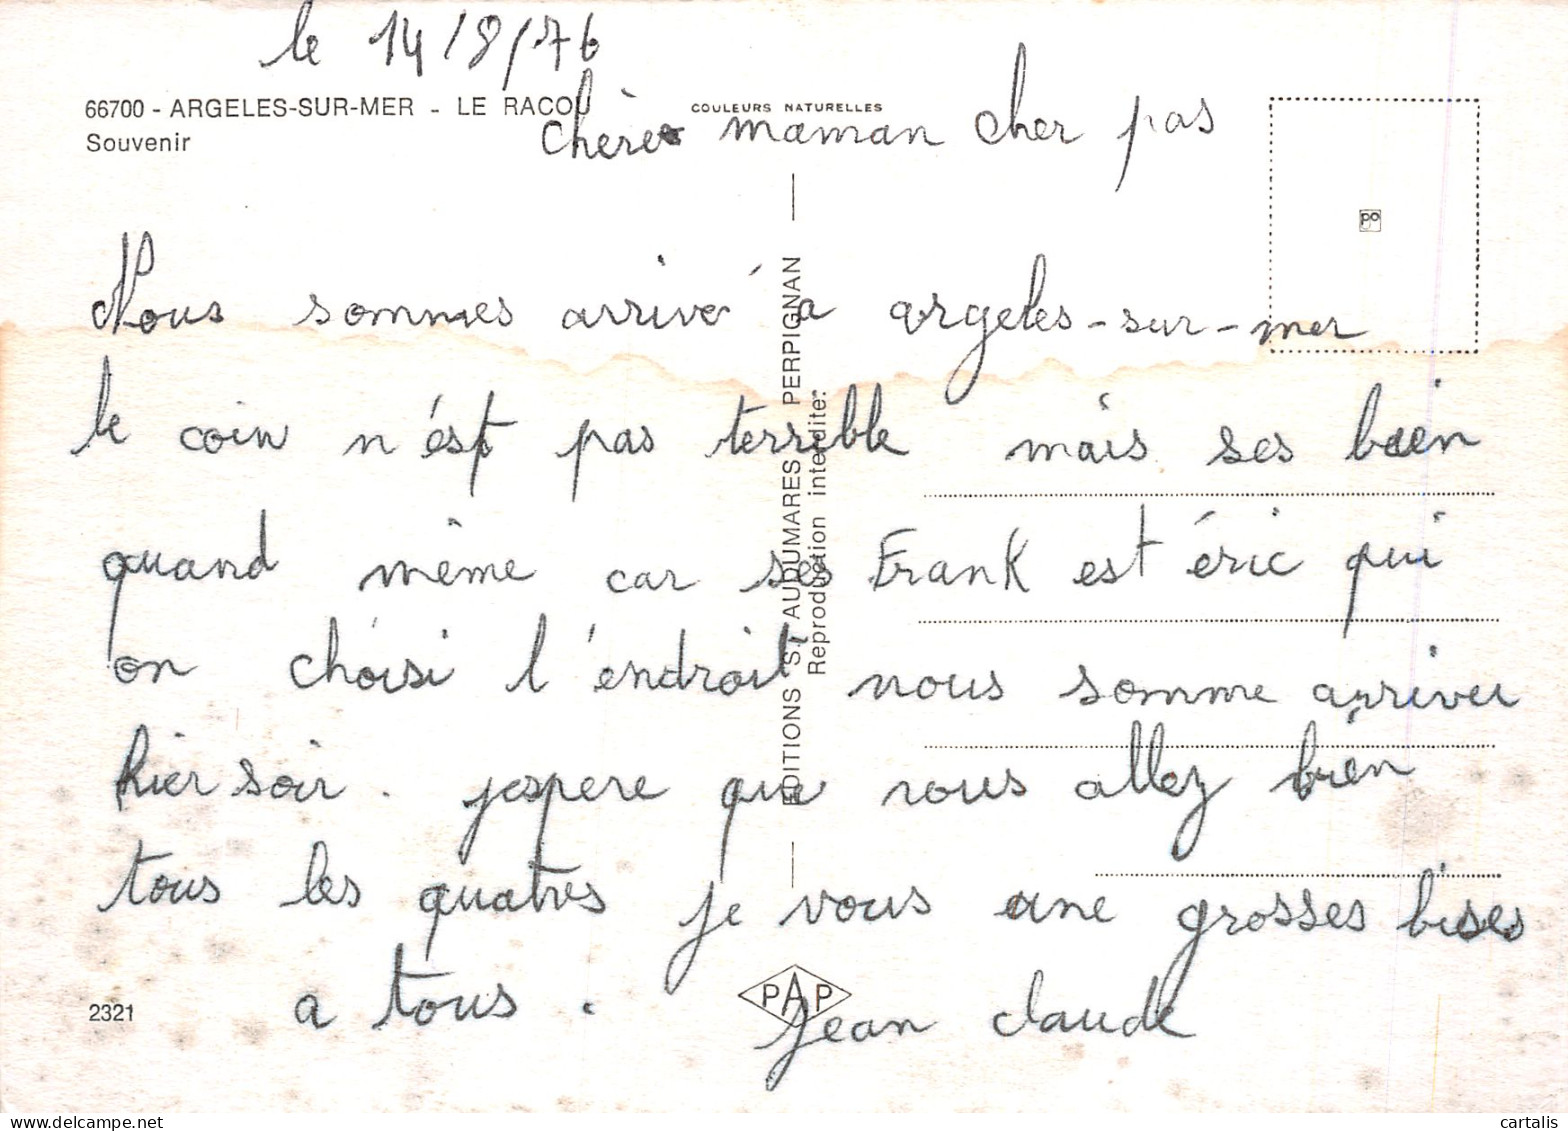 le 14/8/76
66700 - ARGELES-SUR-MER - LE RACOU
Souvenir
COULEURS NATURELLES
chère maman cher pas
Nous sommes arrivé a argeles-sur-mer
le coin n'ést pas terrible mais ses bien
quand même car ses Frank est éric qui
on choisi l'éndroit nous somme arriver
hier soir. jespere que vous allez bien
tous les quatres je vous une grosses bises
a tous.
jean claude
EDITIONS ST AUDUMARES PERPIGNAN
Reproduction interdite.
PAP
2321
cartalis